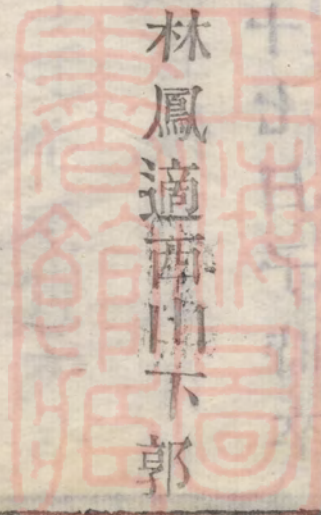 林鳳適西山下郭